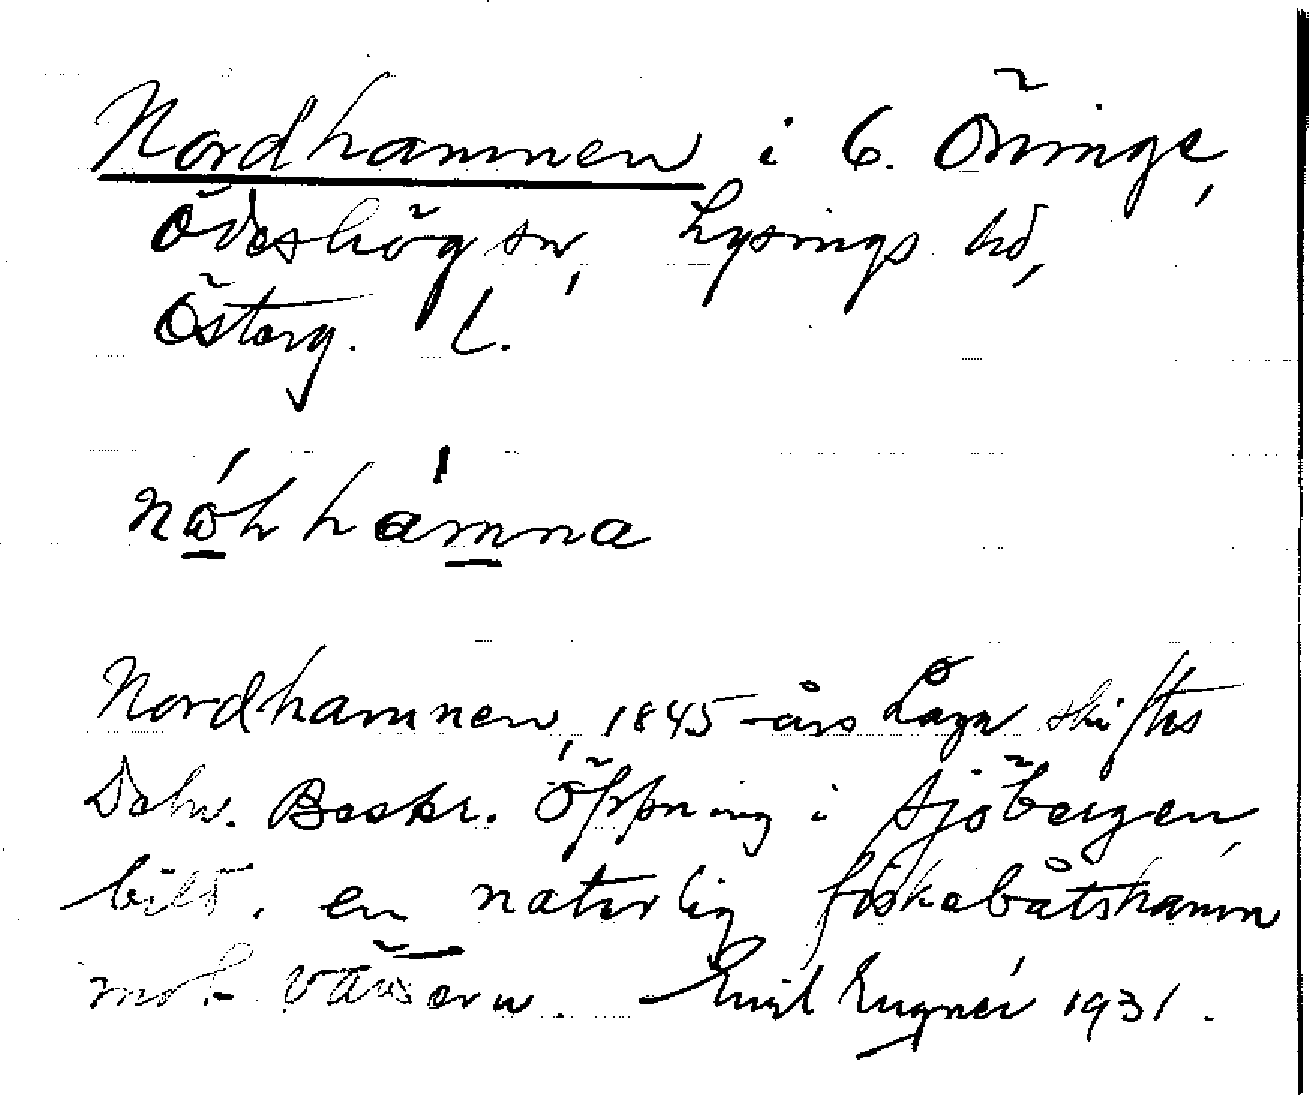 Nordhamnen i 6. Öninge,
Ödeshög sn, Lysings hd,
Österg. L.
nó̱hhám̱na
Nordhamnen, 1845-års Laga skiftes
Deln. Beskr. Öppning i sjöbergen,
bild. en naturlig fiskebåtshamn
mot Vättern. Emil Eugnér 1931.